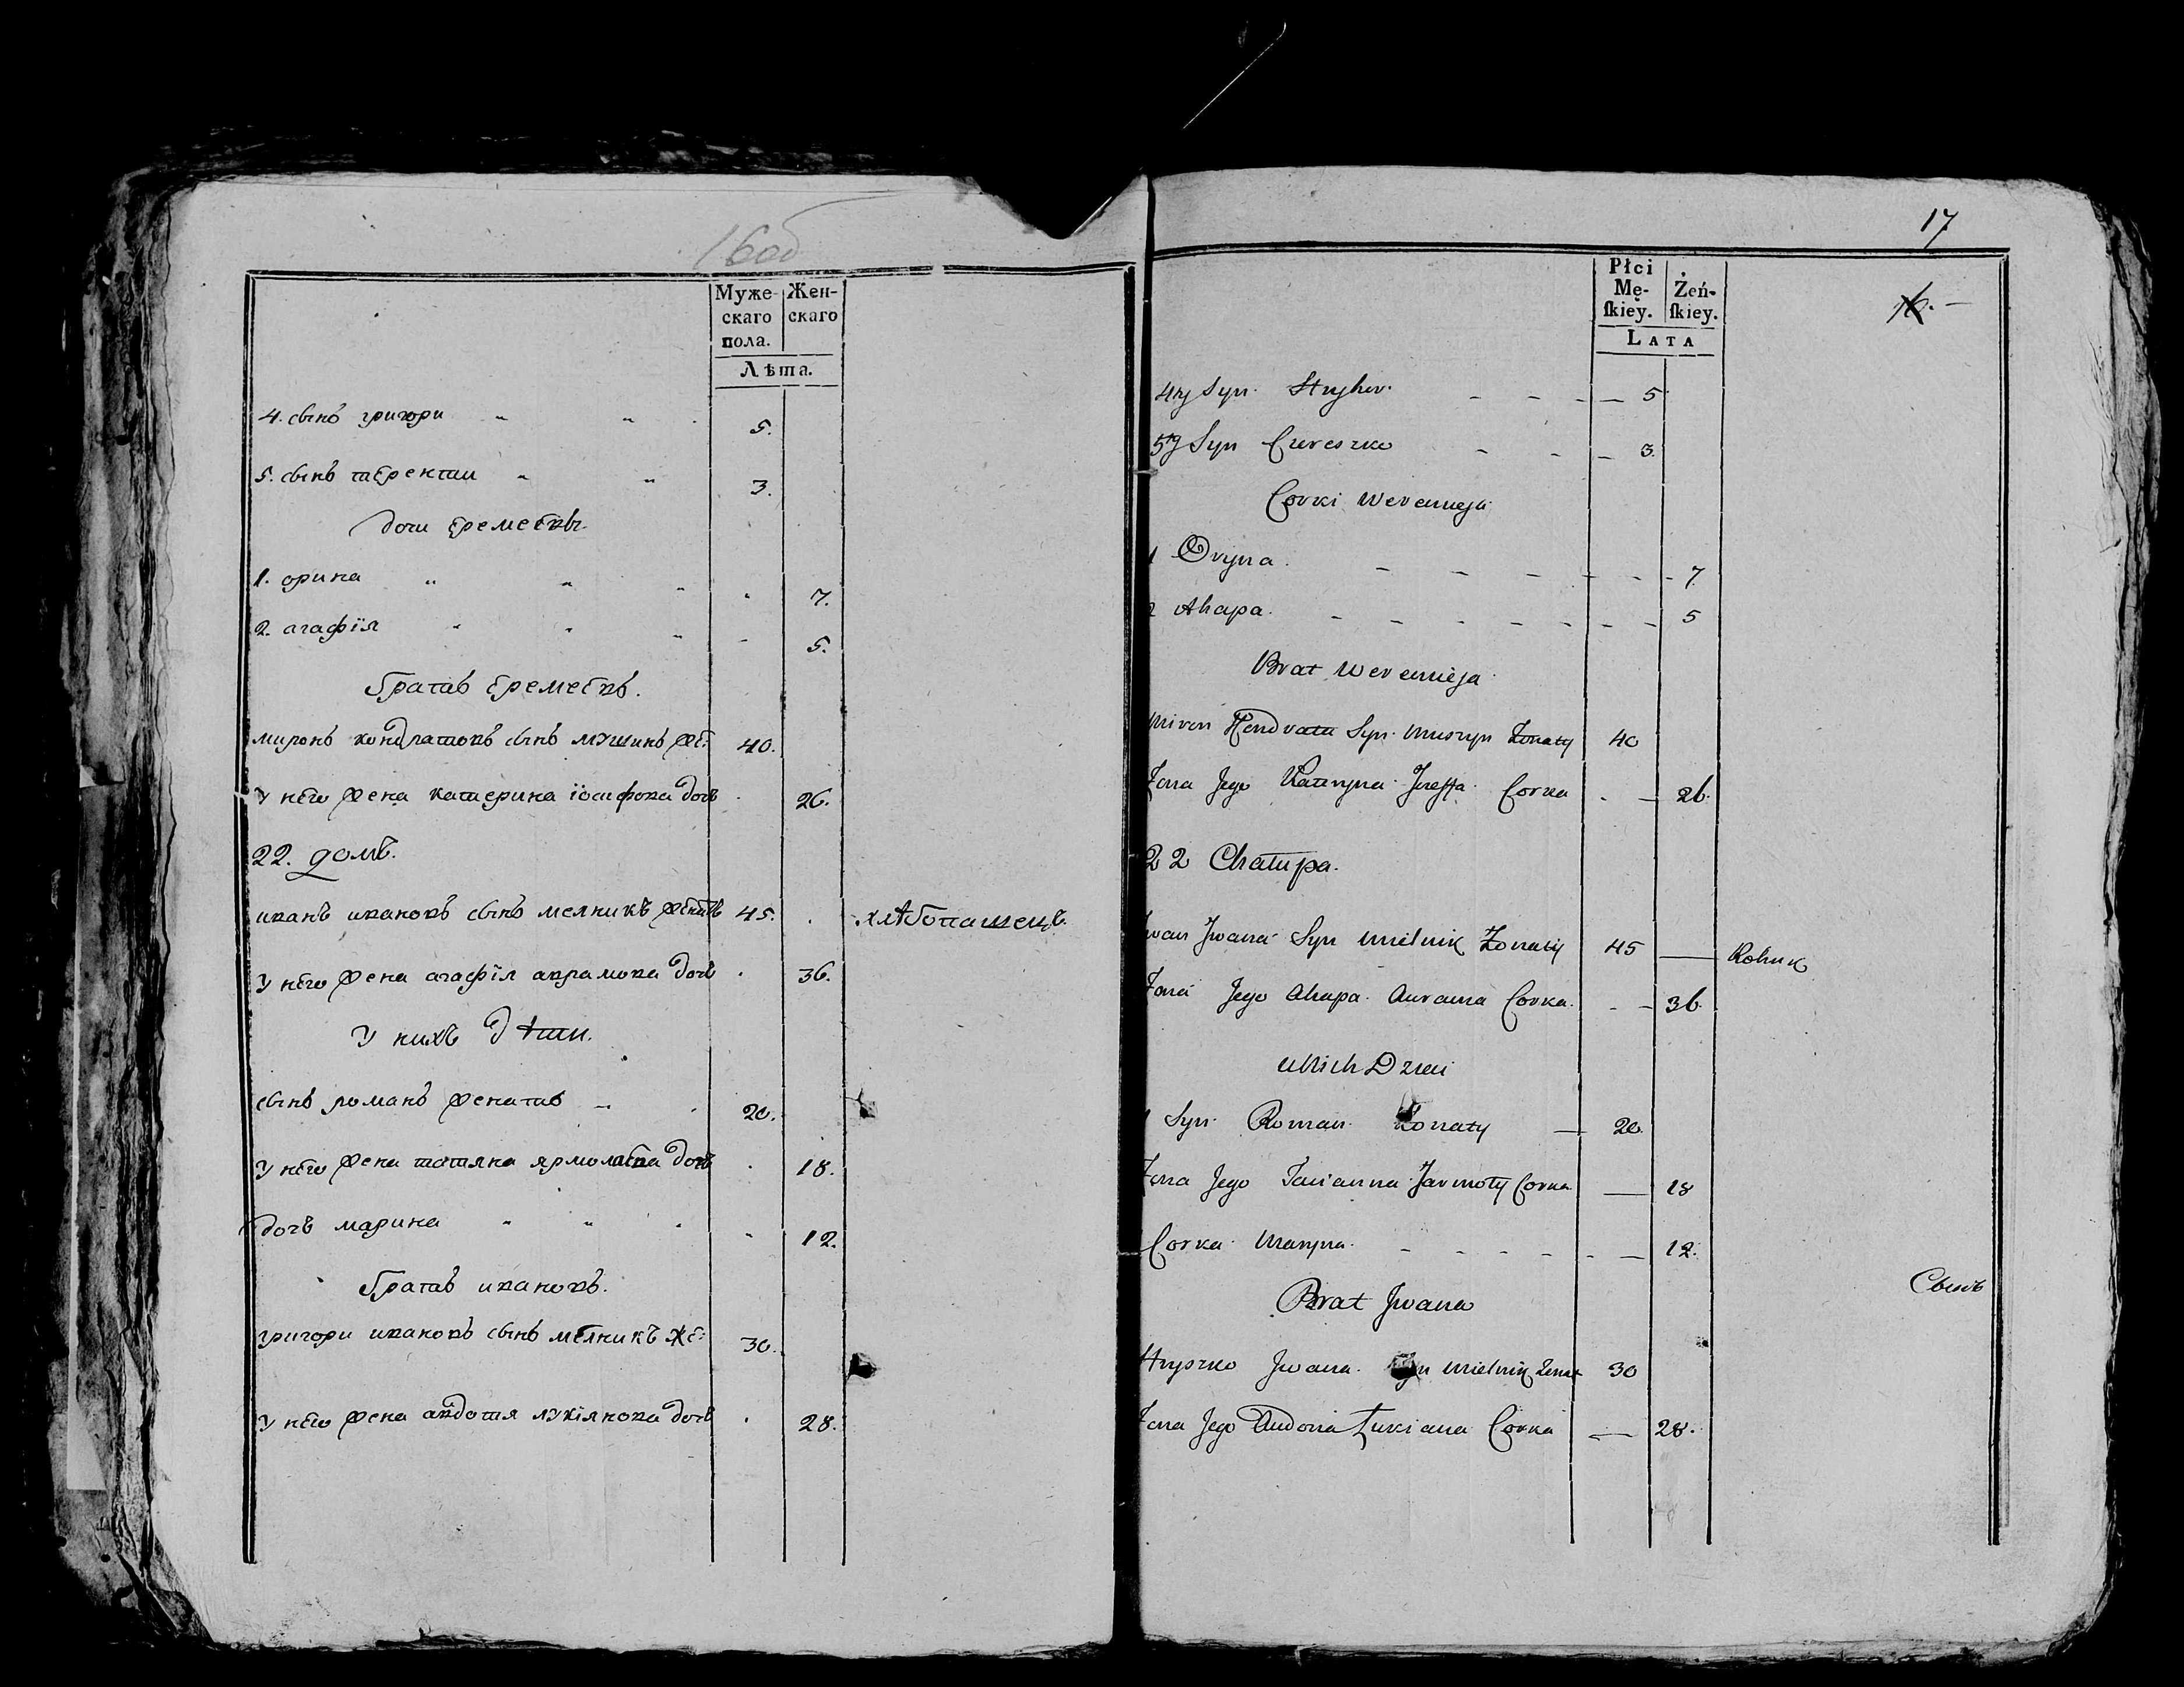 16 об
Муже- Жен-
скаго скаго
пола.
Лѣта.
4. сынъ григори 5.
5. сынъ терентии 3.
дочи еремеевы
1. орина 7.
2. агафїя 5.
братъ еремеевъ.
миронъ кондратовъ сынъ мушинъ же: 40.
у него жена катерина їосифова дочь 26.
22. домъ.
иванъ ивановъ сынъ мелникъ женатъ 45. хлѣбопашецъ.
у него жена агафїя аврамова дочь 36.
У нихъ дѣти.
сынъ романъ женатъ 20.
у него жена татяна ярмолаева дочь 18.
дочь марина 12.
братъ ивановъ.
григори ивановъ сынъ мелникъ же: 30.
у него жена авдотя лукїянова дочь 28.
17
Płci
Mę- Żeń-
ſkiey. ſkiey.
LATA
16.
4ty Syn Hryhor 5
5ty Syn Cereszko 3.
Corki Weremieja
1 Oryna 7
2 Ahapa 5
Brat Weremieja
Miron Kondrata Syn Muszyn Żonaty 40
Żona Jego Kateryna Jozeffa Corka 26.
22 Chatupa.
Iwan Jwana Syn Mielnik Żonaty 45 Rolnik
Żona Jego Ahapa Awrama Corka 36.
U Nich Dzieci
1 Syn Roman Żonaty 20.
Żona Jego Tacianna Jarmoły Corka 18
Corka Maryna 12.
Сынъ
Brat Jwana
Hryszko Jwana Syn Mielnik Żonat 30
Żona Jego Audocia Łukiana Corka 28.